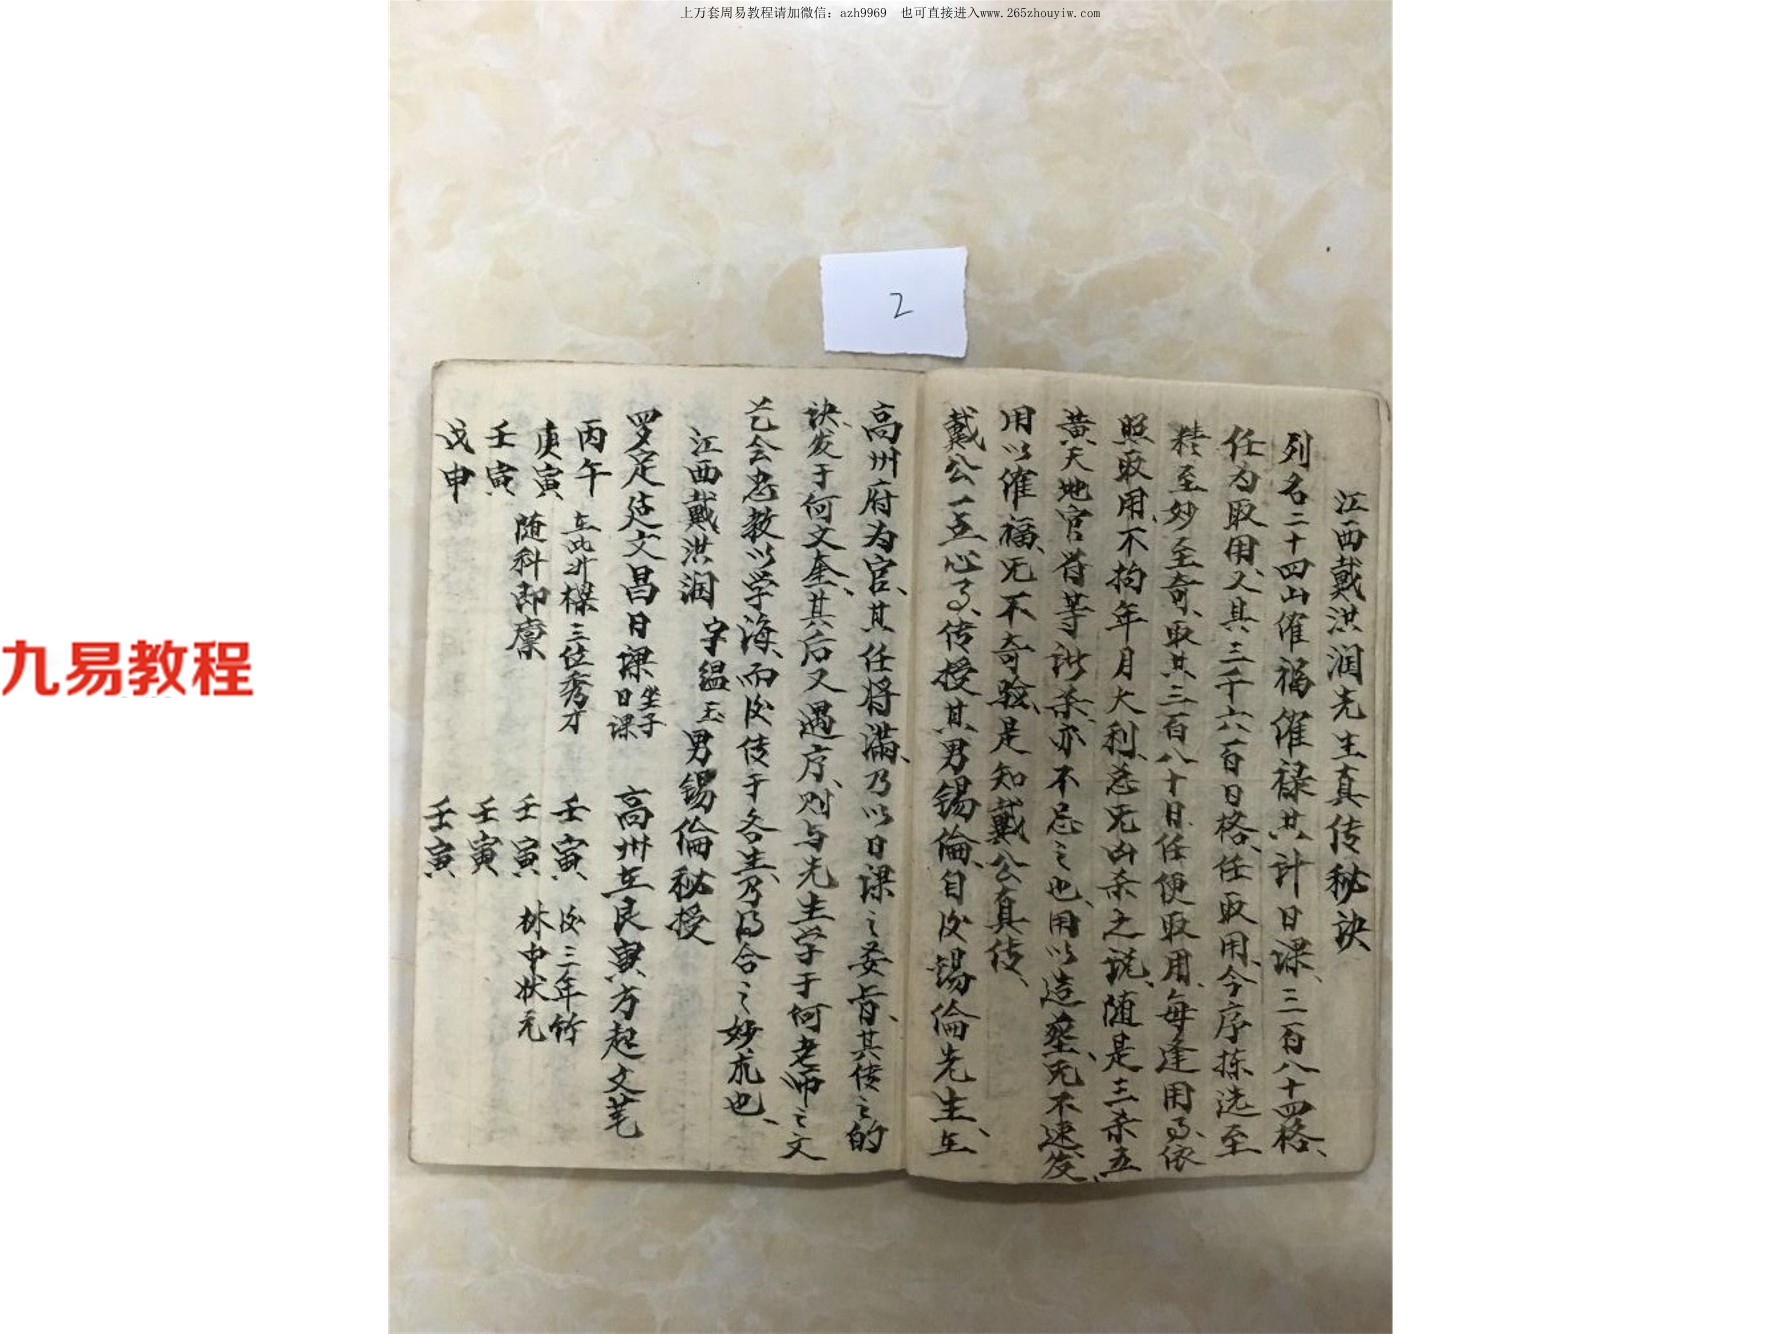 上万套周易教程请加微信：azh9969 也可直接进入www.265zhouyiw.com
九易教程
2
江西戴洪润先生真传秘诀
列名二十四山催福催禄共计日课、三百八十四格、
任为取用、又其三千六百日格、任取用、今序拣选至
精至妙至奇、取共三百八十日任便取用、每逢用事、依
照取用、不拘年月大利、忌无凶杀之说、随是三杀五
黄天地官符等诸杀、亦不忌之也、用以造葬、无不速发、
用以催福、无不奇验、是知戴公真传、
戴公一点心事、传授其男锡倫、自后锡倫先生、在
高州府为官、其任将满、乃以日课之妄旨、其传之的
诀、发于何文奎、其后又遇序、则与先生学于何老师之文
艺会、忠教以学海、而后传于各生、乃得合之妙用也、
江西戴洪润 字缊玉 男锡倫秘授
罗定延文昌日课 坐子日课
丙午
庚寅
壬寅
戊申
在此升樑三位秀才
随科即廪
高州在艮寅方起文笔
壬寅
壬寅
壬寅
壬寅
后三年竹
林中状元